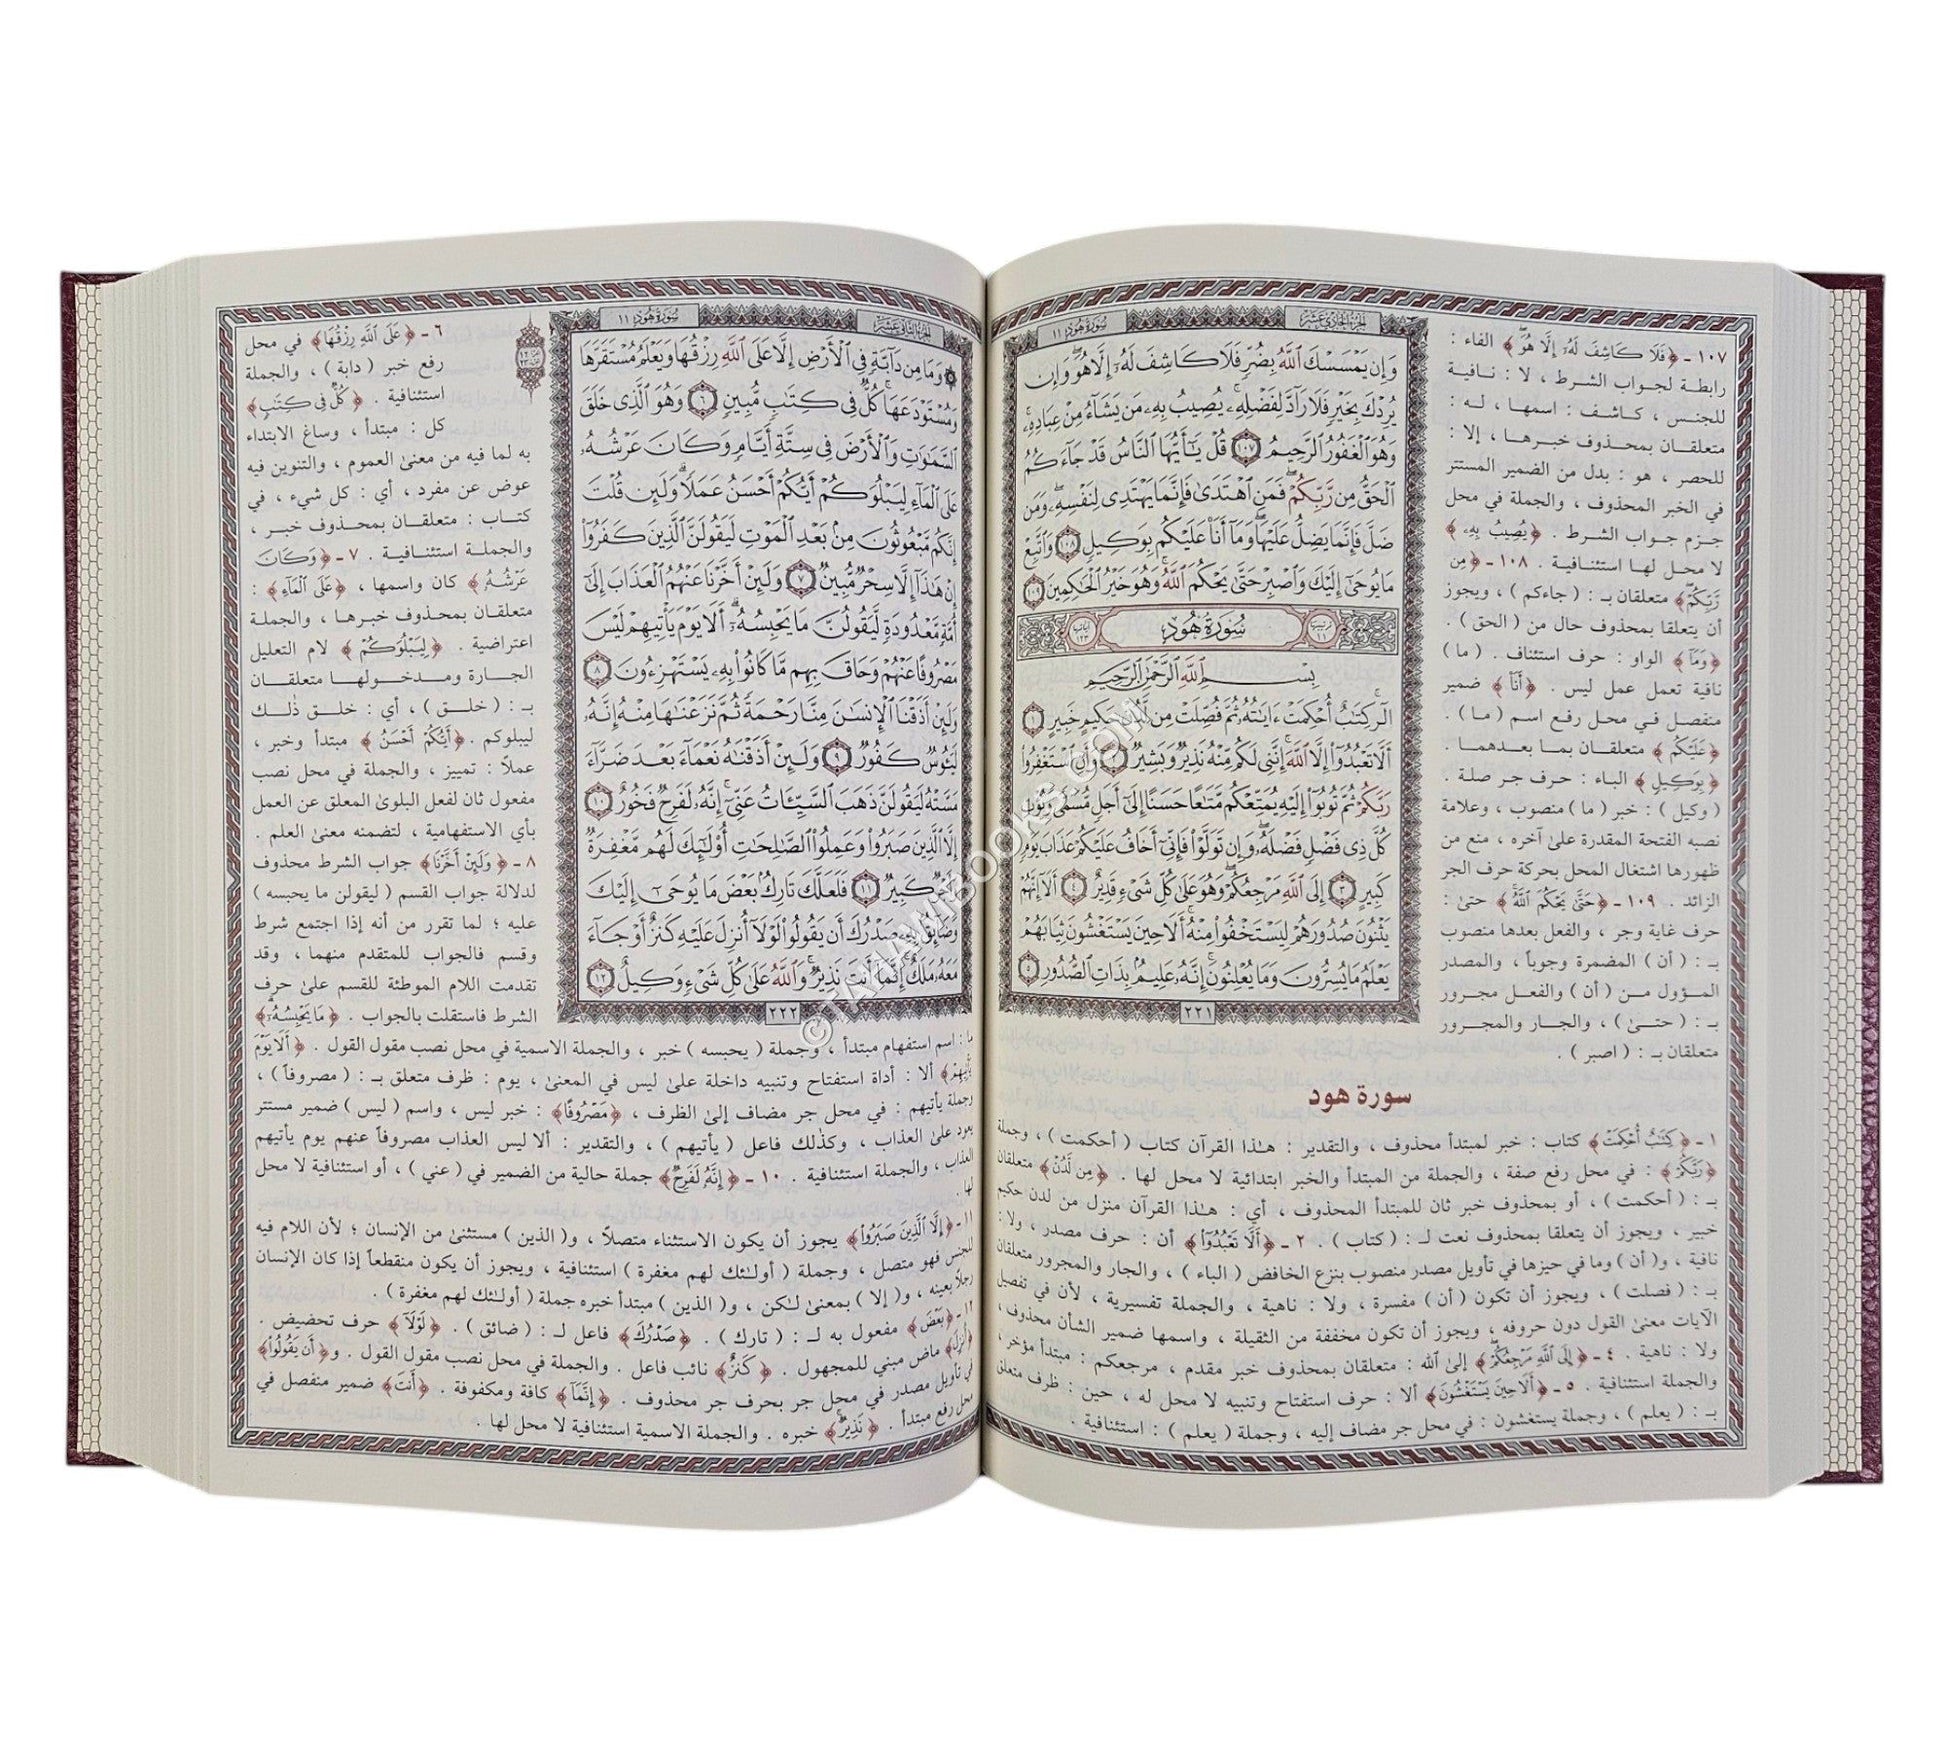 سُورَةُ هُودٍ ١١
الجزء الحادي عشر
وَإِن يَمْسَسْكَ ٱللَّهُ بِضُرٍّ فَلَا كَاشِفَ لَهُۥٓ إِلَّا هُوَ ۖ وَإِن
يُرِدْكَ بِخَيْرٍ فَلَا رَآدَّ لِفَضْلِهِۦ ۚ يُصِيبُ بِهِۦ مَن يَشَآءُ مِنْ عِبَادِهِۦ ۚ
وَهُوَ ٱلْغَفُورُ ٱلرَّحِيمُ ١٠٧ قُلْ يَٰٓأَيُّهَا ٱلنَّاسُ قَدْ جَآءَكُمُ
ٱلْحَقُّ مِن رَّبِّكُمْ ۖ فَمَنِ ٱهْتَدَىٰ فَإِنَّمَا يَهْتَدِى لِنَفْسِهِۦ ۖ وَمَن
ضَلَّ فَإِنَّمَا يَضِلُّ عَلَيْهَا ۖ وَمَآ أَنَا۠ عَلَيْكُم بِوَكِيلٍ ١٠٨ وَٱتَّبِعْ
مَا يُوحَىٰٓ إِلَيْكَ وَٱصْبِرْ حَتَّىٰ يَحْكُمَ ٱللَّهُ ۚ وَهُوَ خَيْرُ ٱلْحَٰكِمِينَ ١٠٩
ترتيبها ١١ سُورَةُ هُودٍ آياتها ١٢٣
بِسْمِ ٱللَّهِ ٱلرَّحْمَٰنِ ٱلرَّحِيمِ
الٓر ۚ كِتَٰبٌ أُحْكِمَتْ ءَايَٰتُهُۥ ثُمَّ فُصِّلَتْ مِن لَّدُنْ حَكِيمٍ خَبِيرٍ ١
أَلَّا تَعْبُدُوٓا۟ إِلَّا ٱللَّهَ ۚ إِنَّنِى لَكُم مِّنْهُ نَذِيرٌ وَبَشِيرٌ ٢ وَأَنِ ٱسْتَغْفِرُوا۟
رَبَّكُمْ ثُمَّ تُوبُوٓا۟ إِلَيْهِ يُمَتِّعْكُم مَّتَٰعًا حَسَنًا إِلَىٰٓ أَجَلٍ مُّسَمًّى وَيُؤْتِ
كُلَّ ذِى فَضْلٍ فَضْلَهُۥ ۖ وَإِن تَوَلَّوْا۟ فَإِنِّىٓ أَخَافُ عَلَيْكُمْ عَذَابَ يَوْمٍ
كَبِيرٍ ٣ إِلَى ٱللَّهِ مَرْجِعُكُمْ ۖ وَهُوَ عَلَىٰ كُلِّ شَىْءٍ قَدِيرٌ ٤ أَلَآ إِنَّهُمْ
يَثْنُونَ صُدُورَهُمْ لِيَسْتَخْفُوا۟ مِنْهُ ۚ أَلَا حِينَ يَسْتَغْشُونَ ثِيَابَهُمْ
يَعْلَمُ مَا يُسِرُّونَ وَمَا يُعْلِنُونَ ۚ إِنَّهُۥ عَلِيمٌۢ بِذَاتِ ٱلصُّدُورِ ٥
٢٢١
١٠٧ ـ ﴿فَلَا كَاشِفَ لَهُۥٓ إِلَّا هُوَ﴾ الفاء :
رابطة لجواب الشرط ، لا : نافية
للجنس ، كاشف : اسمها ، له :
متعلقان بمحذوف خبرها ، إلا :
للحصر ، هو : بدل من الضمير المستتر
في الخبر المحذوف ، والجملة في محل
جزم جواب الشرط . ﴿يُصِيبُ بِهِۦ﴾
لا محل لها استئنافية . ١٠٨ ـ ﴿مِن
رَّبِّكُمْ﴾ متعلقان بـ : ( جاءكم ) ، ويجوز
أن يتعلقا بمحذوف حال من ( الحق ) .
﴿وَمَآ﴾ الواو : حرف استئناف . ( ما )
نافية تعمل عمل ليس . ﴿أَنَا۠﴾ ضمير
منفصل في محل رفع اسم ( ما ) .
﴿عَلَيْكُم﴾ متعلقان بما بعدهما .
﴿بِوَكِيلٍ﴾ الباء : حرف جر صلة .
( وكيل ) : خبر ( ما ) منصوب ، وعلامة
نصبه الفتحة المقدرة على آخره ، منع من
ظهورها اشتغال المحل بحركة حرف الجر
الزائد . ١٠٩ ـ ﴿حَتَّىٰ يَحْكُمَ ٱللَّهُ﴾ حتى :
حرف غاية وجر ، والفعل بعدها منصوب
بـ : ( أن ) المضمرة وجوباً ، والمصدر
المؤول من ( أن ) والفعل مجرور
بـ : ( حتى ) ، والجار والمجرور
متعلقان بـ : ( اصبر ) .
سورة هود
١ ـ ﴿كِتَٰبٌ أُحْكِمَتْ﴾ كتاب : خبر لمبتدأ محذوف ، والتقدير : هذا القرآن كتاب ( أحكمت ) ، وجملة
﴿رَبَّكُمْ﴾ : في محل رفع صفة ، والجملة من المبتدأ والخبر ابتدائية لا محل لها . ﴿مِن لَّدُنْ﴾ متعلقان
بـ : ( أحكمت ) ، أو بمحذوف خبر ثان للمبتدأ المحذوف ، أي : هذا القرآن منزل من لدن حكيم
خبير ، ويجوز أن يتعلقا بمحذوف نعت لـ : ( كتاب ) . ٢ ـ ﴿أَلَّا تَعْبُدُوٓا۟﴾ أن : حرف مصدر ، ولا :
نافية ، و( أن ) وما في حيزها في تأويل مصدر منصوب بنزع الخافض ( الباء ) ، والجار والمجرور متعلقان
بـ : ( فصلت ) ، ويجوز أن تكون ( أن ) مفسرة ، ولا : ناهية ، والجملة تفسيرية ، لأن في تفصيل
الآيات معنى القول دون حروفه ، ويجوز أن تكون مخففة من الثقيلة ، واسمها ضمير الشأن محذوف ،
ولا : ناهية . ٤ ـ ﴿إِلَى ٱللَّهِ مَرْجِعُكُمْ﴾ إلى الله : متعلقان بمحذوف خبر مقدم ، مرجعكم : مبتدأ مؤخر ،
والجملة استئنافية . ٥ ـ ﴿أَلَا حِينَ يَسْتَغْشُونَ﴾ ألا : حرف استفتاح وتنبيه لا محل له ، حين : ظرف متعلق
بـ : ( يعلم ) ، وجملة يستغشون : في محل جر مضاف إليه ، وجملة ( يعلم ) : استئنافية .
سُورَةُ هُودٍ ١١
الجزء الثاني عشر
وَمَا مِن دَآبَّةٍ فِى ٱلْأَرْضِ إِلَّا عَلَى ٱللَّهِ رِزْقُهَا وَيَعْلَمُ مُسْتَقَرَّهَا
وَمُسْتَوْدَعَهَا ۚ كُلٌّ فِى كِتَٰبٍ مُّبِينٍ ٦ وَهُوَ ٱلَّذِى خَلَقَ
ٱلسَّمَٰوَٰتِ وَٱلْأَرْضَ فِى سِتَّةِ أَيَّامٍ وَكَانَ عَرْشُهُۥ
عَلَى ٱلْمَآءِ لِيَبْلُوَكُمْ أَيُّكُمْ أَحْسَنُ عَمَلًا ۗ وَلَئِن قُلْتَ
إِنَّكُم مَّبْعُوثُونَ مِنۢ بَعْدِ ٱلْمَوْتِ لَيَقُولَنَّ ٱلَّذِينَ كَفَرُوٓا۟
إِنْ هَٰذَآ إِلَّا سِحْرٌ مُّبِينٌ ٧ وَلَئِنْ أَخَّرْنَا عَنْهُمُ ٱلْعَذَابَ إِلَىٰٓ
أُمَّةٍ مَّعْدُودَةٍ لَّيَقُولُنَّ مَا يَحْبِسُهُۥٓ ۗ أَلَا يَوْمَ يَأْتِيهِمْ لَيْسَ
مَصْرُوفًا عَنْهُمْ وَحَاقَ بِهِم مَّا كَانُوا۟ بِهِۦ يَسْتَهْزِءُونَ ٨
وَلَئِنْ أَذَقْنَا ٱلْإِنسَٰنَ مِنَّا رَحْمَةً ثُمَّ نَزَعْنَٰهَا مِنْهُ إِنَّهُۥ
لَيَـُٔوسٌ كَفُورٌ ٩ وَلَئِنْ أَذَقْنَٰهُ نَعْمَآءَ بَعْدَ ضَرَّآءَ
مَسَّتْهُ لَيَقُولَنَّ ذَهَبَ ٱلسَّيِّـَٔاتُ عَنِّىٓ ۚ إِنَّهُۥ لَفَرِحٌ فَخُورٌ ١٠
إِلَّا ٱلَّذِينَ صَبَرُوا۟ وَعَمِلُوا۟ ٱلصَّٰلِحَٰتِ أُو۟لَٰٓئِكَ لَهُم مَّغْفِرَةٌ
وَأَجْرٌ كَبِيرٌ ١١ فَلَعَلَّكَ تَارِكٌۢ بَعْضَ مَا يُوحَىٰٓ إِلَيْكَ
وَضَآئِقٌۢ بِهِۦ صَدْرُكَ أَن يَقُولُوا۟ لَوْلَآ أُنزِلَ عَلَيْهِ كَنزٌ أَوْ جَآءَ
مَعَهُۥ مَلَكٌ ۚ إِنَّمَآ أَنتَ نَذِيرٌ ۚ وَٱللَّهُ عَلَىٰ كُلِّ شَىْءٍ وَكِيلٌ ١٢
٢٢٢
٦ ـ ﴿عَلَى ٱللَّهِ رِزْقُهَا﴾ في محل
رفع خبر ( دابة ) ، والجملة
استئنافية . ﴿كُلٌّ فِى كِتَٰبٍ﴾
كل : مبتدأ ، وساغ الابتداء
به لما فيه من معنى العموم ، والتنوين فيه
عوض عن مفرد ، أي : كل شيء ، في
كتاب : متعلقان بمحذوف خبر ،
والجملة استئنافية . ٧ ـ ﴿وَكَانَ
عَرْشُهُۥ﴾ كان واسمها ، ﴿عَلَى ٱلْمَآءِ﴾ :
متعلقان بمحذوف خبرها ، والجملة
اعتراضية . ﴿لِيَبْلُوَكُمْ﴾ لام التعليل
الجارة ومدخولها متعلقان
بـ : ( خلق ) ، أي : خلق ذلك
ليبلوكم . ﴿أَيُّكُمْ أَحْسَنُ﴾ مبتدأ وخبر ،
عملاً : تمييز ، والجملة في محل نصب
مفعول ثان لفعل البلوى المعلق عن العمل
بأي الاستفهامية ، لتضمنه معنى العلم .
٨ ـ ﴿وَلَئِنْ أَخَّرْنَا﴾ جواب الشرط محذوف
لدلالة جواب القسم ( ليقولن ما يحبسه )
عليه ؛ لما تقرر من أنه إذا اجتمع شرط
وقسم فالجواب للمتقدم منهما ، وقد
تقدمت اللام الموطئة للقسم على حرف
الشرط فاستقلت بالجواب . ﴿مَا يَحْبِسُهُۥٓ﴾
ما : اسم استفهام مبتدأ ، وجملة ( يحبسه ) خبر ، والجملة الاسمية في محل نصب مقول القول . ﴿أَلَا يَوْمَ
يَأْتِيهِمْ﴾ ألا : أداة استفتاح وتنبيه داخلة على ليس في المعنى ، يوم : ظرف متعلق بـ : ( مصروفاً ) ،
وجملة يأتيهم : في محل جر مضاف إلى الظرف ، ﴿مَصْرُوفًا﴾ : خبر ليس ، واسم ( ليس ) ضمير مستتر
يعود على العذاب ، وكذلك فاعل ( يأتيهم ) ، والتقدير : ألا ليس العذاب مصروفاً عنهم يوم يأتيهم
العذاب ، والجملة استئنافية . ١٠ ـ ﴿إِنَّهُۥ لَفَرِحٌ﴾ جملة حالية من الضمير في ( عني ) ، أو استئنافية لا محل
لها .
١١ ـ ﴿إِلَّا ٱلَّذِينَ صَبَرُوا۟﴾ يجوز أن يكون الاستثناء متصلاً ، و( الذين ) مستثنى من الإنسان ؛ لأن اللام فيه
للجنس فهو متصل ، وجملة ( أولئك لهم مغفرة ) استئنافية ، ويجوز أن يكون منقطعاً إذا كان الإنسان
رجلاً بعينه ، و( إلا ) بمعنى لكن ، و( الذين ) مبتدأ خبره جملة ( أولئك لهم مغفرة ) .
١٢ ـ ﴿بَعْضَ﴾ مفعول به لـ : ( تارك ) . ﴿صَدْرُكَ﴾ فاعل لـ : ( ضائق ) . ﴿لَوْلَآ﴾ حرف تحضيض .
﴿أُنزِلَ﴾ ماض مبني للمجهول . ﴿كَنزٌ﴾ نائب فاعل . والجملة في محل نصب مقول القول . و﴿أَن يَقُولُوا۟﴾
في تأويل مصدر في محل جر بحرف جر محذوف . ﴿إِنَّمَآ﴾ كافة ومكفوفة . ﴿أَنتَ﴾ ضمير منفصل في
محل رفع مبتدأ . ﴿نَذِيرٌ﴾ خبره . والجملة الاسمية استئنافية لا محل لها .